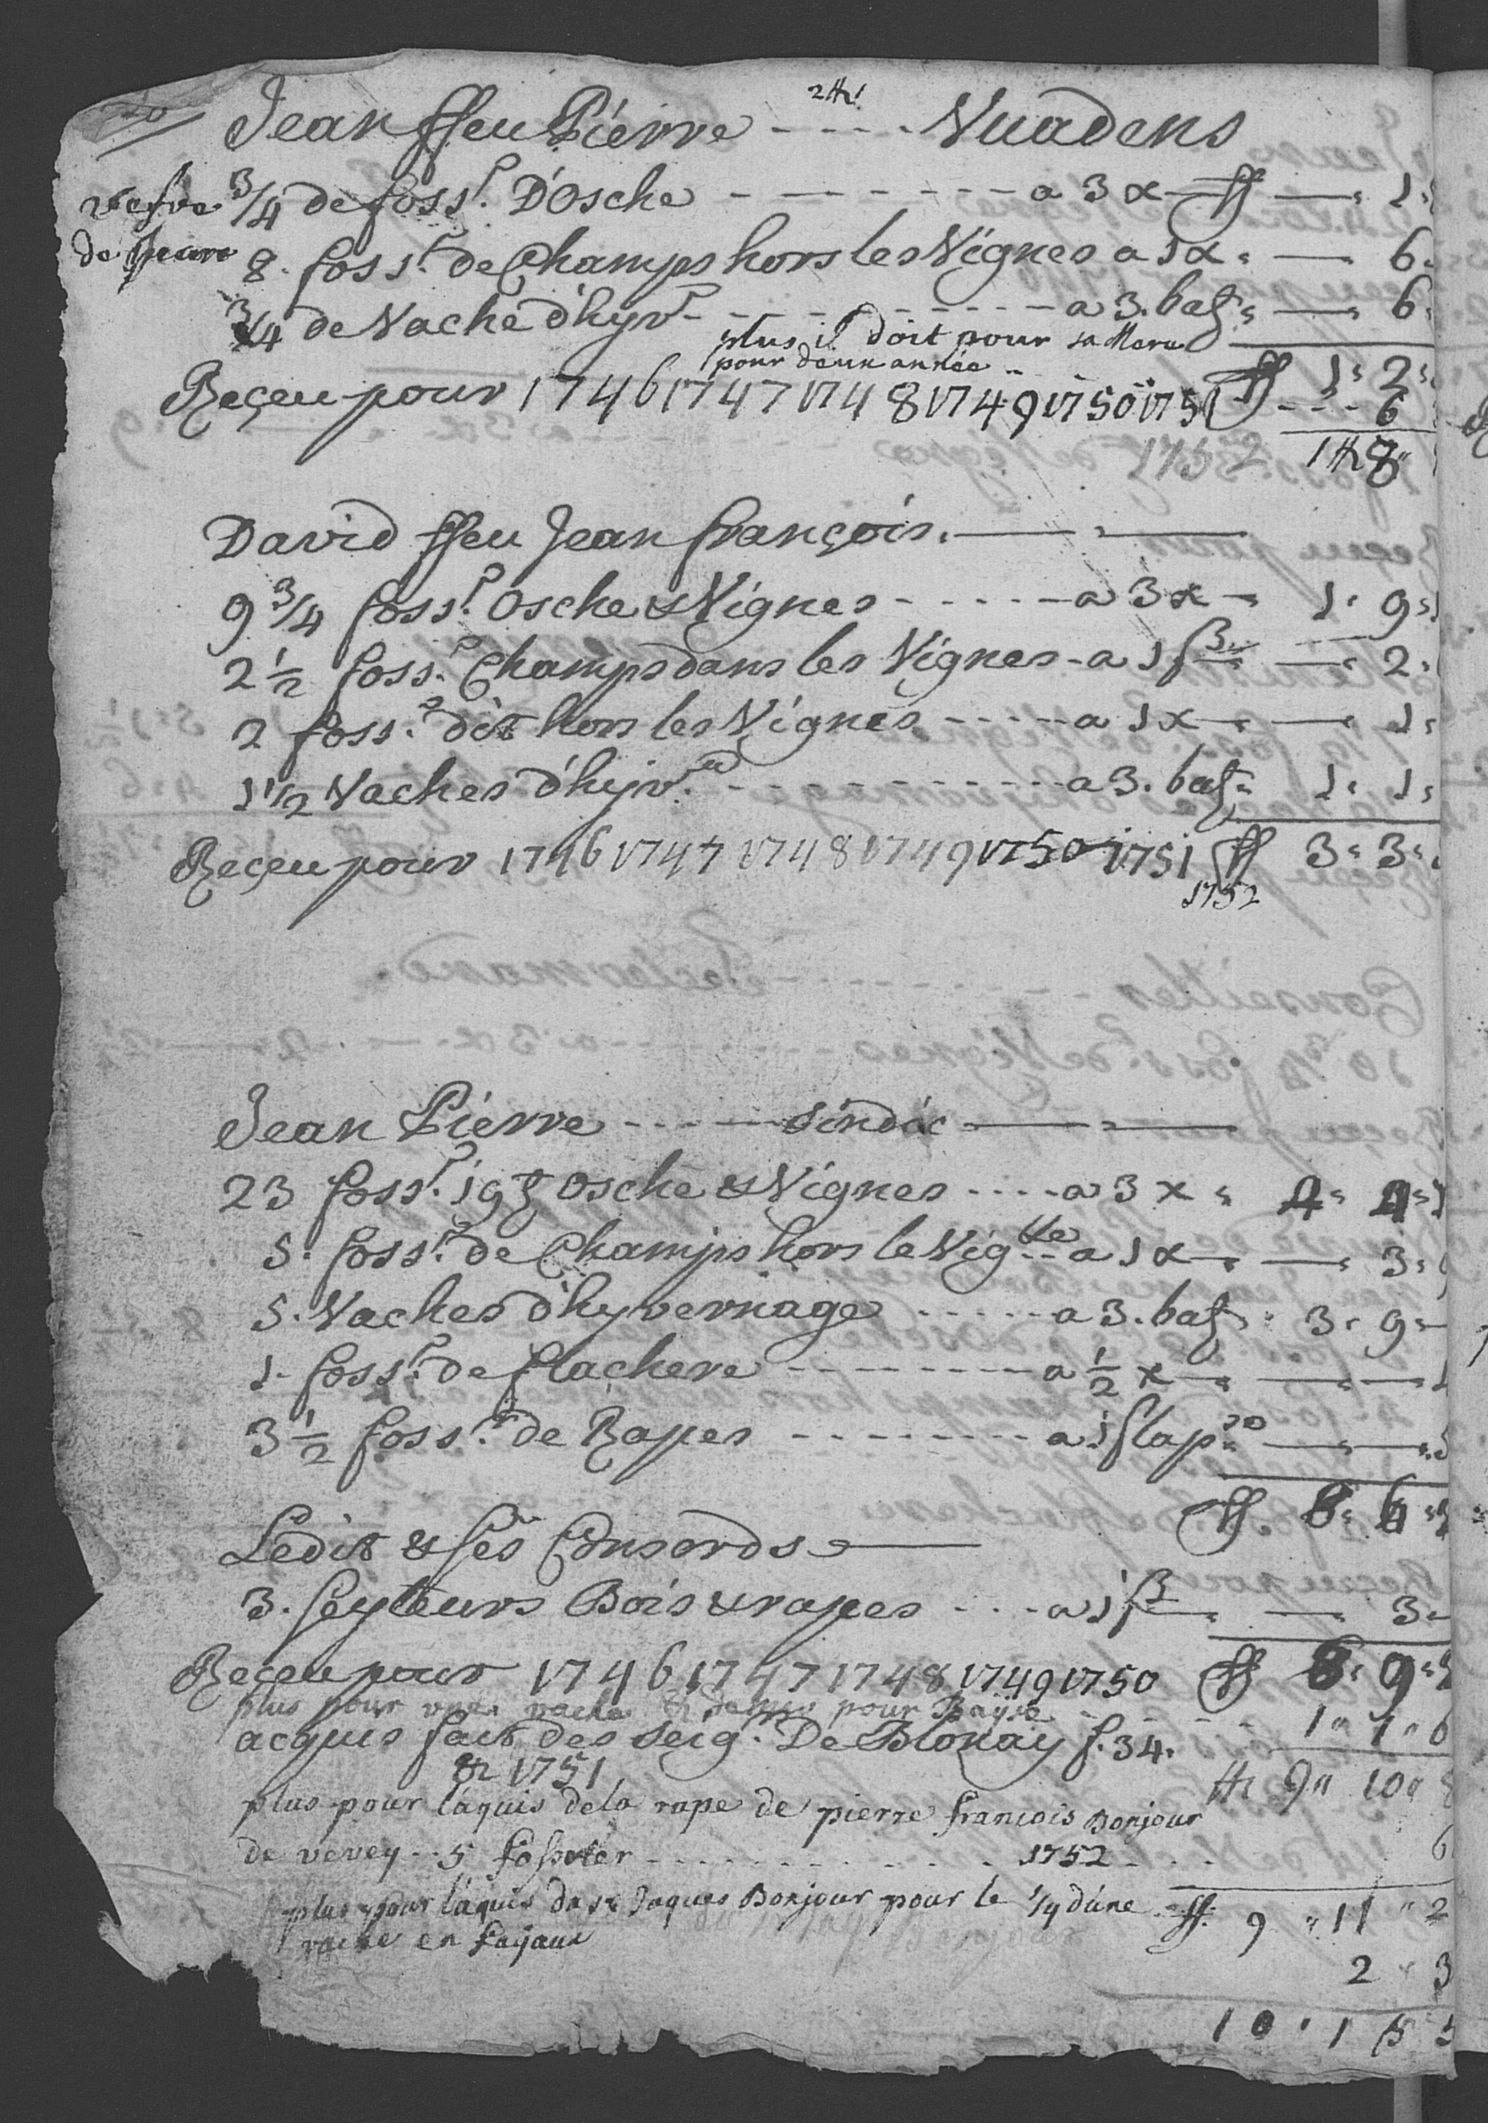 20
Jean ffeu Pierre - - - - Nuadens
vefve 3/4 de foss.r D'Osche - - - - - - - - a 3 x ff 1
de Jean 8. foss.r de Champs hors les Vignes a 1 x 6
3/4 de Vache d'hyv.r - - - - - - - - a 3. batz 6
plus il doit pour sa Mere
pour deux année
Reçeu pour 1746 1747 1748 1749 1750 1751 ff 1 2
6
1752 1 ff 8
David ffeu Jean françois.
9 3/4 foss.r Osche & Vignes - - - - - - a 3 x 1 9
2 1/2 foss.r Champs dans les Vignes - a 1 fß 2
2 foss.r dit hors les Vignes - - - - - a 1 x 1
1 1/2 Vaches d'hyv. - - - - - - - - a 3. batz 1 1
Reçeu pour 1746 1747 1748 1749 1750 1751 ff 3 3
1752
Jean Pierre - - - - - - Sindic
23 foss.r Osche & Vignes - - - - a 3 x 4 4
5. foss.r de Champs hors le Vig a 1 x 3
5. Vaches d'hyvernage - - - - - a 3. batz 3 9
1. foss.r de flachere - - - - - - - - a 1/2 x
3 1/2 foss.r de Rapes - - - - - - - - a 1
ff 8 6
Ledit & ses Consords
3. seyteurs Bois & rapes - - - - a 1 fß 3
Reçeu pour 1746 1747 1748 1749 1750 ff 8 9
plus pour une vache & demis pour 1 1 6
acquis fait des seig.r De Blonay f. 34.
& 1751 ff 9 10
plus pour l'aquis dela rape de pierre francois Bonjour
de vevey - - 5 fossorier - - - - - - - - 1752 6
plus pour l'aquis de sr Jaques Bonjour pour le 1/4 d'une ff. 9 11 2
vache en fayaux
2 3
10 1 5